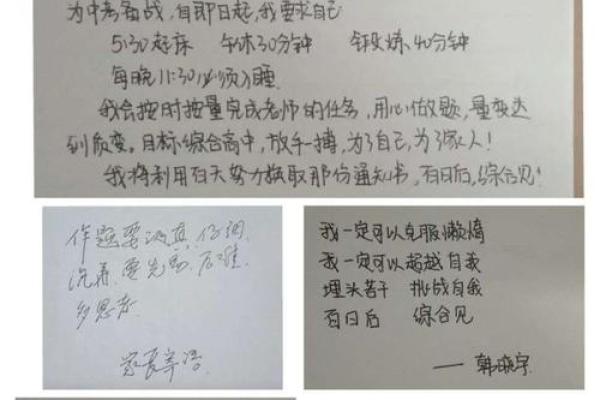 为中考备战，自即日起，我要求自己
5:30起床 午休30分钟 锻炼40分钟
每晚11:30必须入睡
我会按时按量完成老师的任务，用心做题，量变达
到质变。目标综合高中，放手一搏，为了自己，为了家人！
我将利用百天努力换取那份通知书，百日后，综合见！
作题要认真、仔细、
沉着、要先易、后难、
多思考.
家长寄语
我一定可以克服懒惰
我一定可以超越自我
埋头苦干 挑战自我
百日后 综合见
——韩晓宇